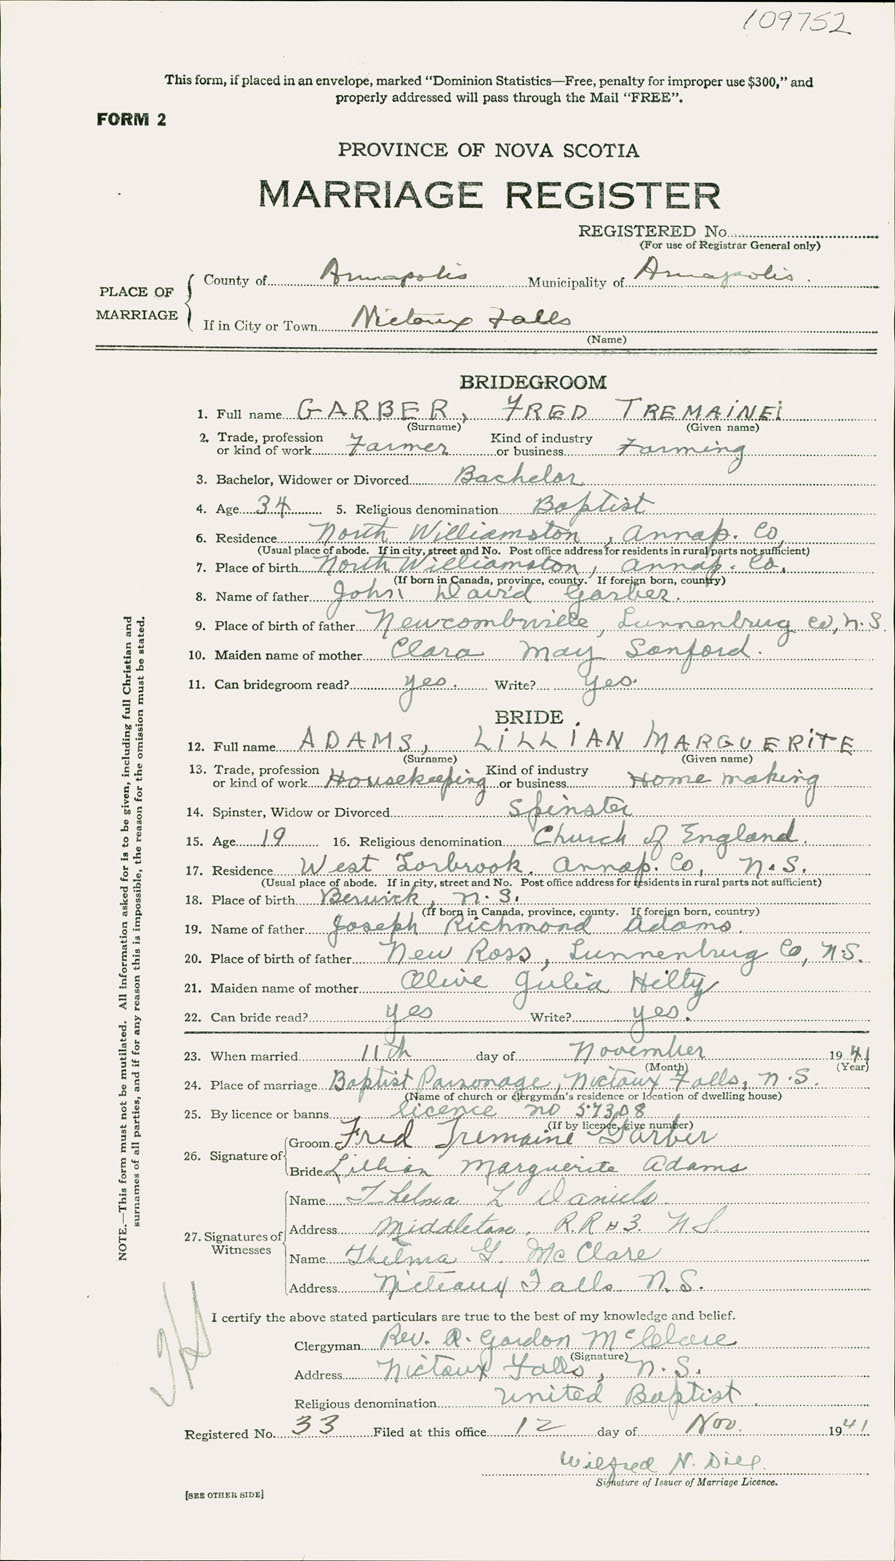 109752
This form, if placed in an envelope, marked "Dominion Statistics—Free, penalty for improper use $300," and
properly addressed will pass through the Mail "FREE".
FORM 2
PROVINCE OF NOVA SCOTIA
MARRIAGE REGISTER
REGISTERED No.
(For use of Registrar General only)
PLACE OF MARRIAGE
County of Annapolis Municipality of Annapolis.
If in City or Town Nictaux Falls
(Name)
BRIDEGROOM
1. Full name GARBER, FRED TREMAINE
(Surname) (Given name)
2. Trade, profession or kind of work Farmer Kind of industry or business Farming
3. Bachelor, Widower or Divorced Bachelor
4. Age 34 5. Religious denomination Baptist
6. Residence North Williamston, Annap. Co,
(Usual place of abode. If in city, street and No. Post office address for residents in rural parts not sufficient)
7. Place of birth North Williamston, Annap. Co.
(If born in Canada, province, county. If foreign born, country)
8. Name of father John David Garber.
9. Place of birth of father Newcombville, Lunnenburg Co, N.S.
10. Maiden name of mother Clara May Sanford.
11. Can bridegroom read? yes. Write? yes.
BRIDE.
12. Full name ADAMS, LILLIAN MARGUERITE
(Surname) (Given name)
13. Trade, profession or kind of work Housekeeping Kind of industry or business Home making
14. Spinster, Widow or Divorced Spinster
15. Age 19 16. Religious denomination Church of England.
17. Residence West Torbrook, Annap. Co, N.S.
(Usual place of abode. If in city, street and No. Post office address for residents in rural parts not sufficient)
18. Place of birth Berwick, N.S.
(If born in Canada, province, county. If foreign born, country)
19. Name of father Joseph Richmond Adams.
20. Place of birth of father New Ross, Lunnenburg Co, N.S.
21. Maiden name of mother Olive Julia Hilty
22. Can bride read? yes Write? yes.
23. When married 11th day of November 1941
(Month) (Year)
24. Place of marriage Baptist Parsonage, Nictaux Falls, N.S.
(Name of church or clergyman's residence or location of dwelling house)
25. By licence or banns licence no 57308
(If by licence, give number)
26. Signature of
Groom Fred Tremaine Garber
Bride Lillian Marguerite Adams
27. Signatures of Witnesses
Name Thelma L Daniels
Address Middleton, R.R #3. N.S.
Name Thelma G. McClare
Address Nicteaux Falls N.S.
I certify the above stated particulars are true to the best of my knowledge and belief.
Clergyman Rev. A. Gordon McClare
(Signature)
Address Nictaux Falls, N.S.
Religious denomination United Baptist
Registered No. 33 Filed at this office 12 day of Nov. 1941
Wilfred N. Diel
Signature of Issuer of Marriage Licence.
[SEE OTHER SIDE]
NOTE.—This form must not be mutilated. All information asked for is to be given, including full Christian and
surnames of all parties, and if for any reason this is impossible, the reason for the omission must be stated.